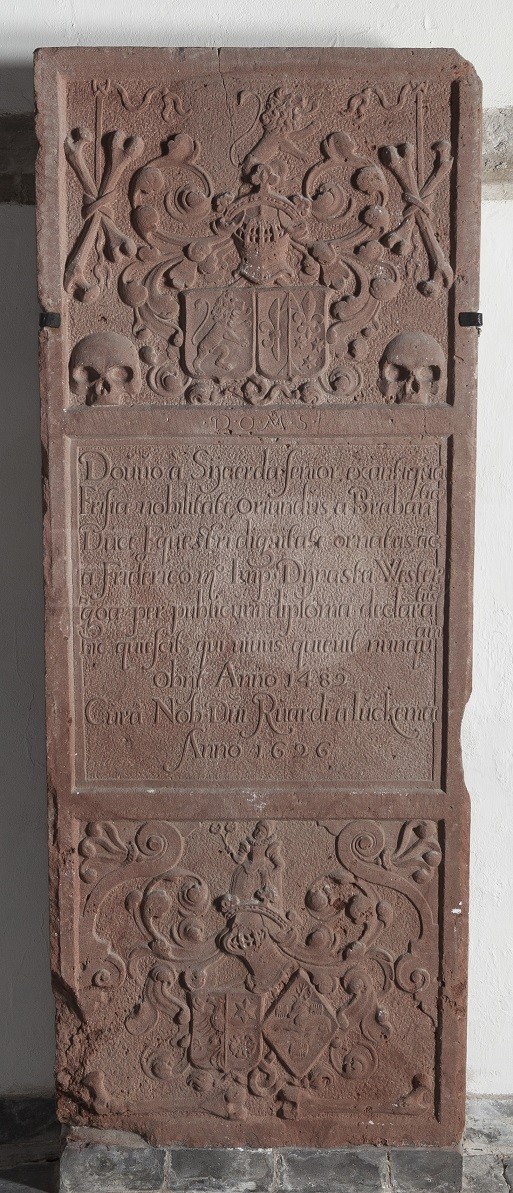 D.O.M.S.
Douuo à Sÿaerda senior, ex antiqua
Frisiæ nobilitate, oriundus a Braban
tiæ
Duce Equestri dignitate ornatus ac
a Friderico m° Imp: Dÿnasta Wester
goæ per publicum diploma declara
tus
hic quiescit, qui viuus quieuit nunqu
am
obiit Anno 1482
Cura Nob: Dni Rüardi a lückema
Anno 1626